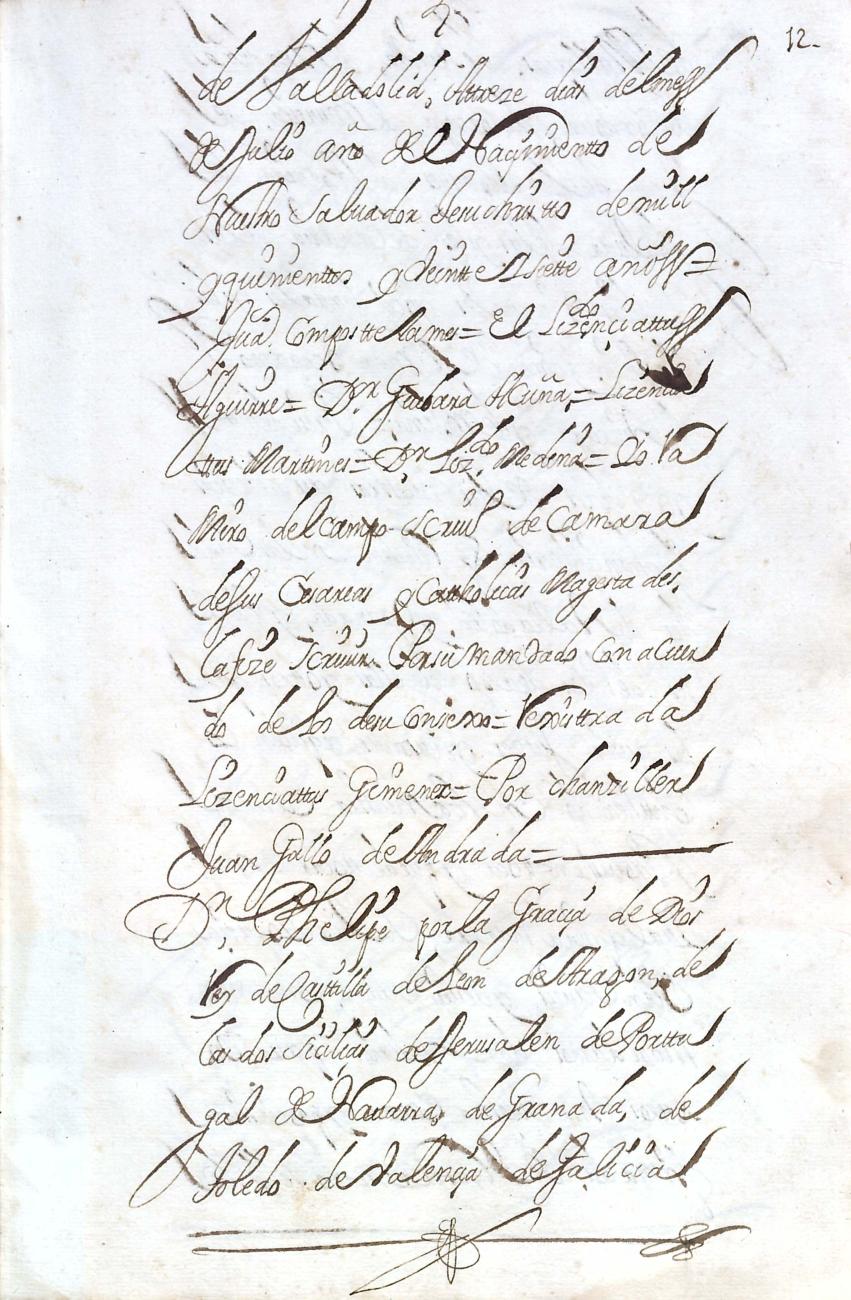 12.
de Valladolid, Atreze dias del mess
de Julio año del Naçimientto de
Nuestro Salvador Jesuchristto de mill
y quinienttos y Veintte Y Siette años =
Jua. Composttelanus = El Lizençiattuss
Aguirre = Dr. Guebara Acuña = Lizencia
ttus Marttines = Dr. Lizdo. Medina = Yo Ra
Miro del campo scriu de Camara
de sus Cesareas y Cattholicas Magestades.
la fize screuir Por su mandado Con acuer
do de los de su Consexo = Rexisttrada
Lizenciattus Gimenez = Por chanziller
Juan Gallo de Andrada =
Dn. Phelipe por la Graçia de Dios
Rey de Casttilla de Leon de Aragon, de
las dos Sicilias de Jerusalen de Porttu
gal de Nauarra, de Granada, de
Toledo de Valençia de Galicia